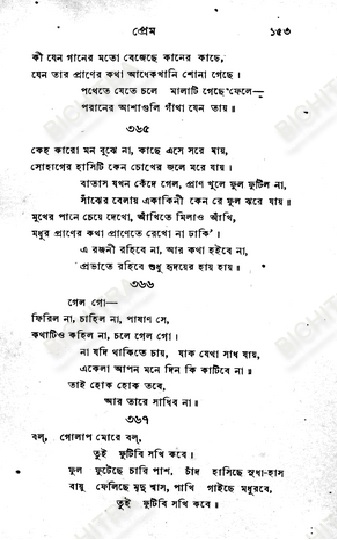 প্রেম ১৫৩
কী যেন গানের মতো বেজেছে কানের কাছে,
যেন তার প্রাণের কথা আধেকখানি শোনা গেছে।
পথেতে যেতে চলে মালাটি গেছে ফেলে—
পরানের আশাগুলি গাঁথা যেন তায়।
৩৬৫
কেহ কারো মন বুঝে না, কাছে এসে সরে যায়,
সোহাগের হাসিটি কেন চোখের জলে মরে যায়।
বাতাস যখন কেঁদে গেল, প্রাণ খুলে ফুল ফুটিল না,
সাঁঝের বেলায় একাকিনী কেন রে ফুল ঝরে যায়॥
মুখের পানে চেয়ে দেখো, আঁখিতে মিলাও আঁখি,
মধুর প্রাণের কথা প্রাণেতে রেখো না ঢাকি'।
এ রজনী রহিবে না, আর কথা হইবে না,
প্রভাতে রহিবে শুধু হৃদয়ের হায় হায়॥
৩৬৬
গেল গো—
ফিরিল না, চাহিল না, পাষাণ সে,
কথাটিও কহিল না, চলে গেল গো॥
না যদি থাকিতে চায়, যাক যেথা সাধ যায়,
একেলা আপন মনে দিন কি কাটিবে না।
তাই হোক হোক তবে,
আর তারে সাধিব না॥
৩৬৭
বল্, গোলাপ মোরে বল্,
তুই ফুটিবি সখি কবে।
ফুল ফুটেছে চারি পাশ, চাঁদ হাসিছে সুধা-হাস
বায়ু ফেলিছে মৃদু শ্বাস, পাখি গাইছে মধুরবে,
তুই ফুটিবি সখি কবে॥